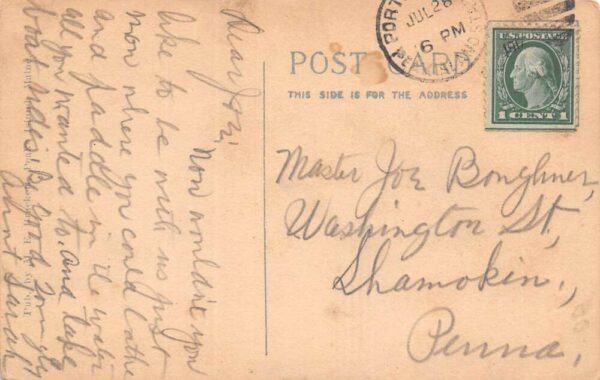 Dear Joe;
Now wouldn't you
like to be with us just
now where you could bathe
and paddle in the water
all you wanted to. And take
boat rides. Be good.
Aunt Sarah
POST CARD
THIS SIDE IS FOR THE ADDRESS
PORT
JUL 28
6 PM
U.S. POSTAGE
1 CENT 1
Master Joe Boughner,
Washington St.,
Shamokin.,
Penna.,